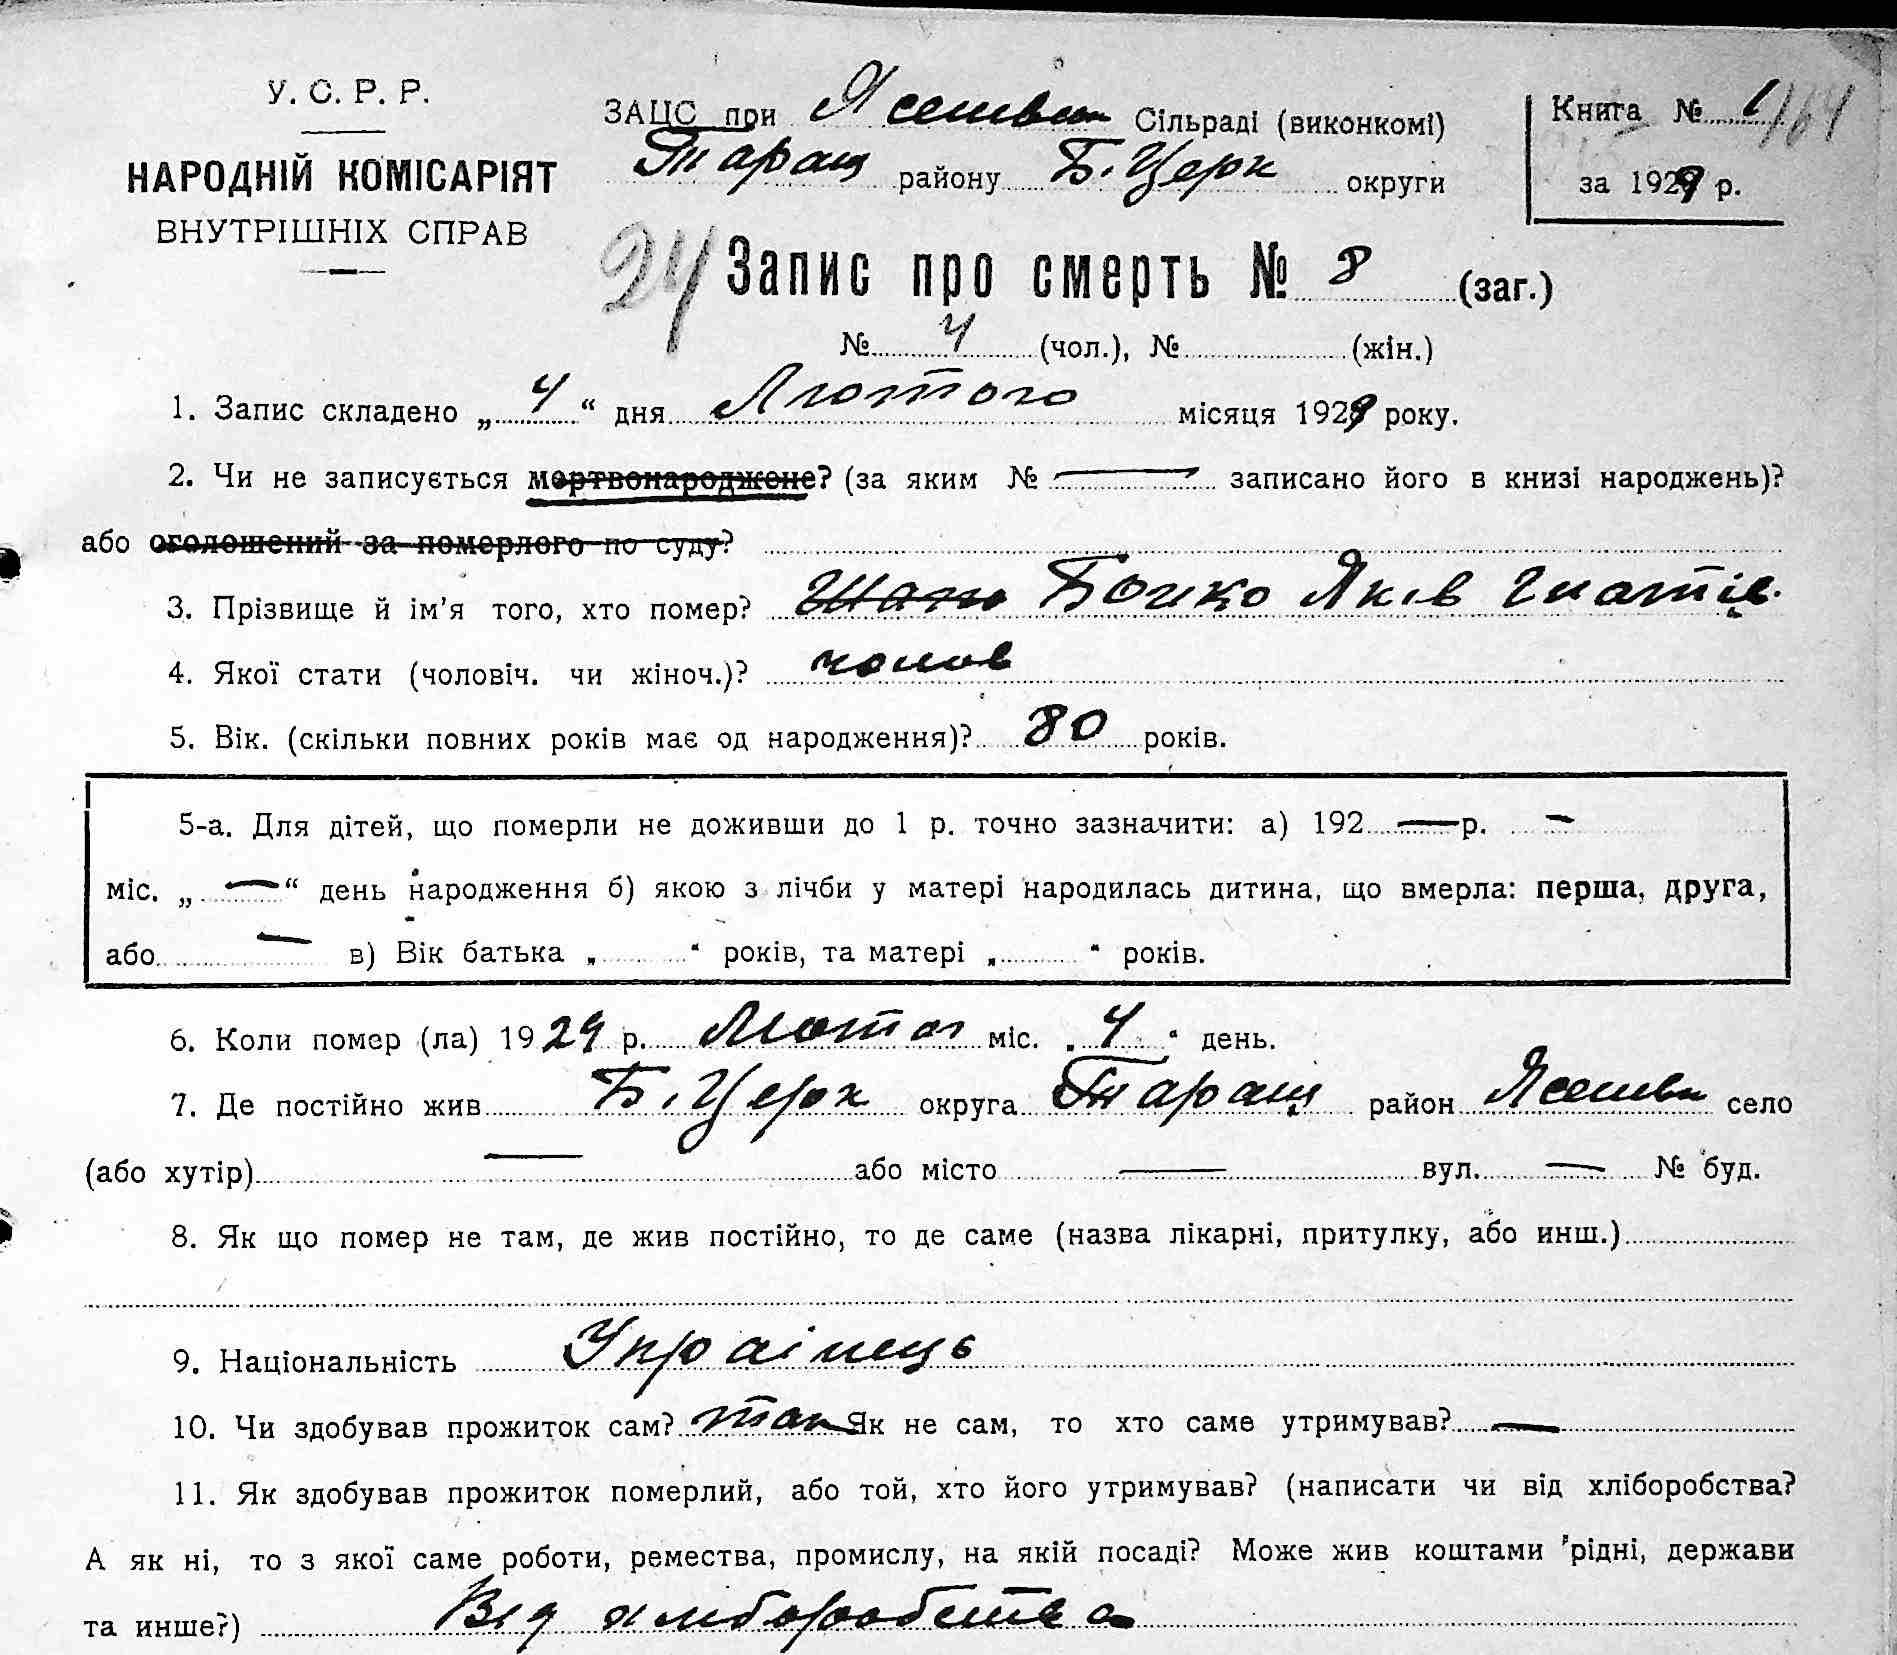 У. С. Р. Р.
НАРОДНІЙ КОМІСАРІЯТ
ВНУТРІШНІХ СПРАВ
ЗАЦС при Ясешки Сільраді (виконкомі)
Таращ району Б. Церк округи
Книга № 1 164
за 1929 р.
24 Запис про смерть № 8 (заг.)
№ 4 (чол.), № (жін.)
1. Запис складено „ 4 “ дня Лютого місяця 1929 року.
2. Чи не записується мертвонароджене? (за яким № — записано його в книзі народжень)?
або оголошений за померлого по суду?
3. Прізвище й ім'я того, хто помер? Бойко Яків Гнатів.
4. Якої стати (чоловіч. чи жіноч.)? чолов
5. Вік. (скільки повних років має од народження)? 80 років.
5-а. Для дітей, що померли не доживши до 1 р. точно зазначити: а) 192 — р. —
міс. „ — “ день народження б) якою з лічби у матері народилась дитина, що вмерла: перша, друга,
або — в) Вік батька „ “ років, та матері „ “ років.
6. Коли помер (ла) 1929 р. Лютог міс. „ 4 “ день.
7. Де постійно жив Б. Церк округа Таращ район село
(або хутір) — або місто — вул. — № буд.
8. Як що помер не там, де жив постійно, то де саме (назва лікарні, притулку, або инш.)
9. Національність Українець
10. Чи здобував прожиток сам? так Як не сам, то хто саме утримував? —
11. Як здобував прожиток померлий, або той, хто його утримував? (написати чи від хліборобства?
А як ні, то з якої саме роботи, ремества, промислу, на якій посаді? Може жив коштами рідні, держави
та инше?) Від хліборобства